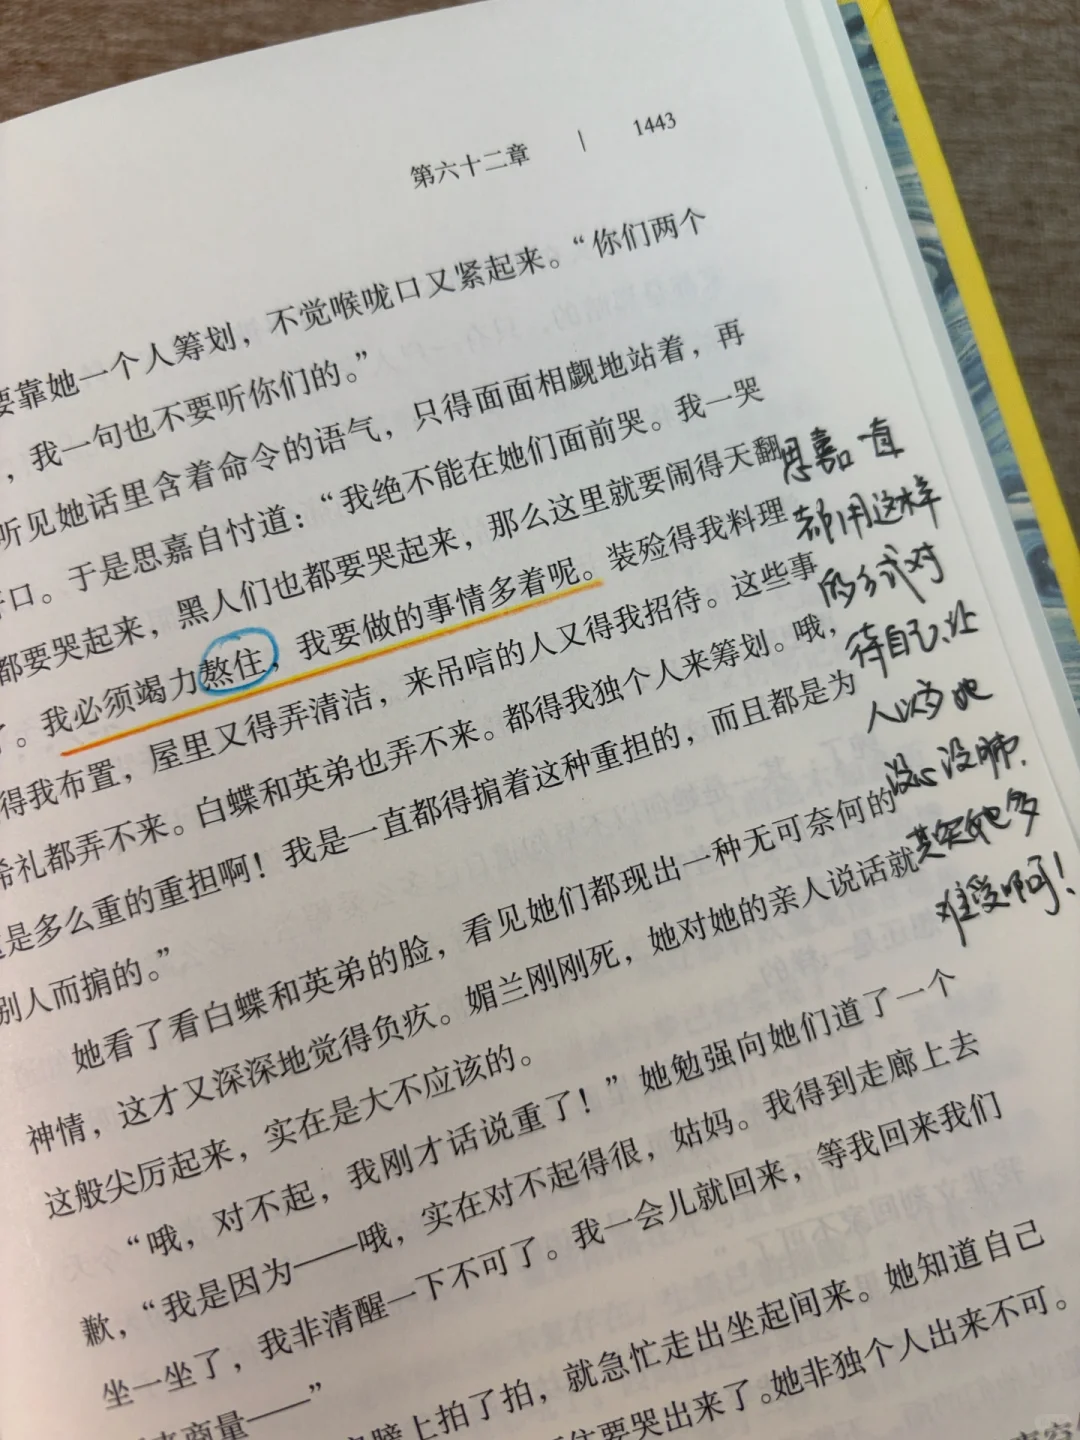 第六十二章 | 1443
要靠她一个人筹划，不觉喉咙口又紧起来。“你们两个
，我一句也不要听你们的。”
听见她话里含着命令的语气，只得面面相觑地站着，再
口。于是思嘉自忖道：“我绝不能在她们面前哭。我一哭
都要哭起来，黑人们也都要哭起来，那么这里就要闹得天翻
了。我必须竭力熬住，我要做的事情多着呢。装殓得我料理
得我布置，屋里又得弄清洁，来吊唁的人又得我招待。这些事
希礼都弄不来。白蝶和英弟也弄不来。都得我独个人来筹划。哦，
是多么重的重担啊！我是一直都得掮着这种重担的，而且都是为
别人而掮的。”
她看了看白蝶和英弟的脸，看见她们都现出一种无可奈何的
神情，这才又深深地觉得负疚。媚兰刚刚死，她对她的亲人说话就
这般尖厉起来，实在是大不应该的。
“哦，对不起，我刚才话说重了！”她勉强向她们道了一个
歉，“我是因为——哦，实在对不起得很，姑妈。我得到走廊上去
坐一坐了，我非清醒一下不可了。我一会儿就回来，等我回来我们
商量——”
上拍了拍，就急忙走出坐起间来。她知道自己
住要哭出来了。她非独个人出来不可。
思嘉一直
都用这样
的方式对
待自己，让
人以为她
没心没肺.
其实她多
难受啊！